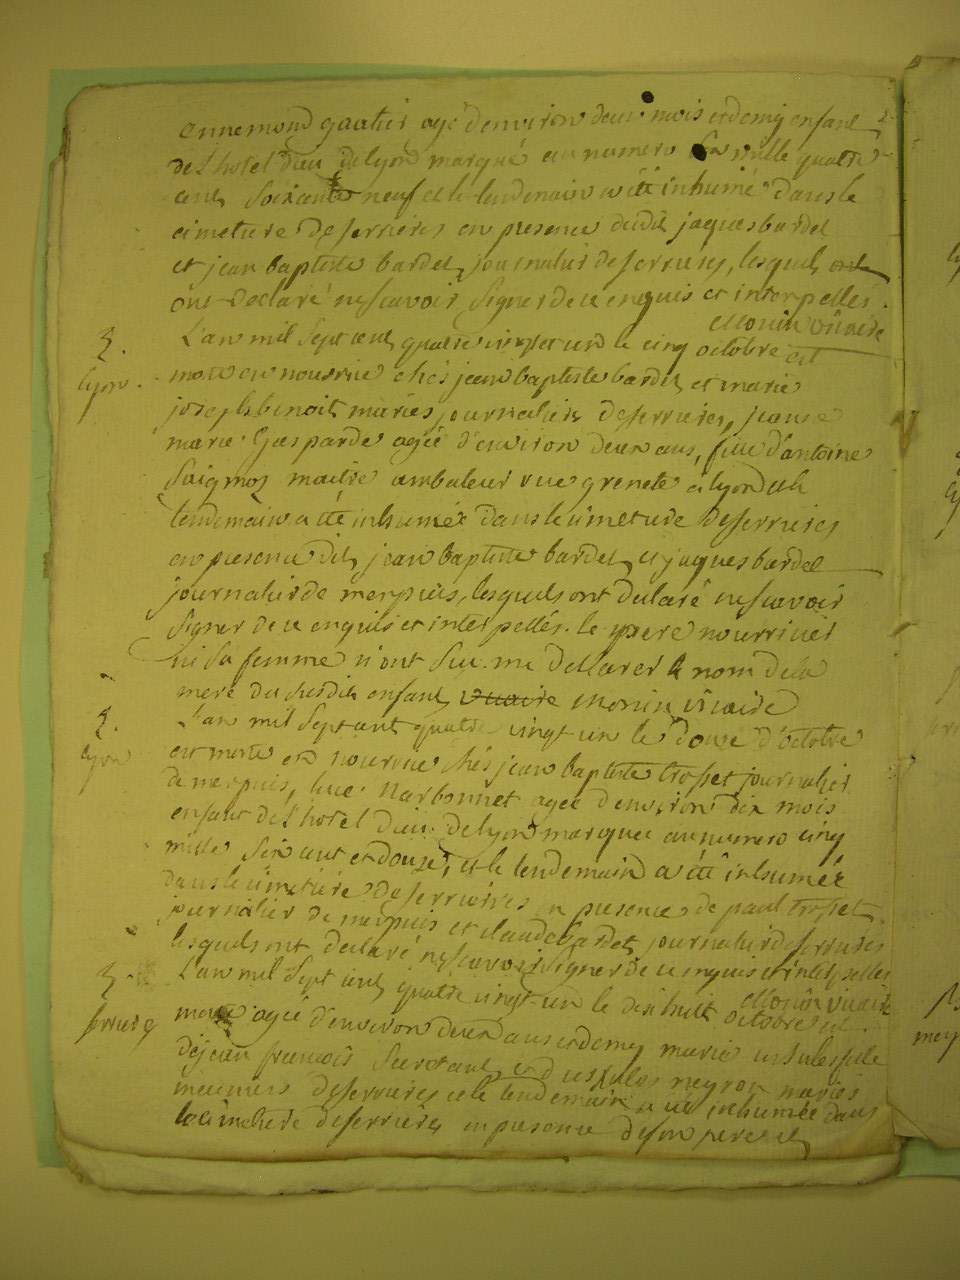 ennemond gautier agé d'environ deux mois et demy enfant
de l'hotel dieu de lyon marqué au numero mille quatre
cent soixante neuf et le lendemain a été inhumé dans le
cimetiere de serrieres en presence dudit jaques bardel
et jean baptiste bardel journalier de serrieres, lesquels
ont declaré ne scavoir signer de ce enquis et interpellés.
Monin vicaire
L'an mil sept cent quatre vingt et un le cinq octobre est
lyon.
morte en nourrice chés jean baptiste bardel et marie
joseph benoit mariés journaliers de serrieres, jeanne
marie gasparde agée d'environ deux ans, fille d'antoine
maitre ambaleur rue grenete à lyon et le
lendemain a été inhumée dans le cimetiere de serrieres
en presence dudit jean baptiste bardel et jaques bardel
journalier de merpuis, lesquels ont declaré ne scavoir
signer de ce enquis et interpellés. le pere nourricier
ni sa femme n'ont scu me declarer le nom de la
mere du susdit enfant vicaire monin vicaire
L'an mil sept cent quatre vingt un le douze d'octobre
lyon
est morte en nourrice chés jean baptiste trosset journalier
de merpuis, luce narbonnet agée d'environ dix mois
enfant de l'hotel dieu de lyon marquée au numero cinq
mille six cent et douze, et le lendemain a été inhumée
dans le cimetiere de serrieres en presence de paul trosset
journalier de merpuis et claude bardel journalier de serrieres
lesquels ont declaré ne scavoir signer de ce enquis et interpellés
Monin vicaire
L'an mil sept cent quatre vingt un le dix huit octobre est
serrieres
morte agée d'environ deux ans et demy marie ursule fille
de jean francois et d'ursule neyron mariés
meuniers de serrieres et le lendemain a été inhumée dans
le cimetiere de serrieres en presence de son pere et